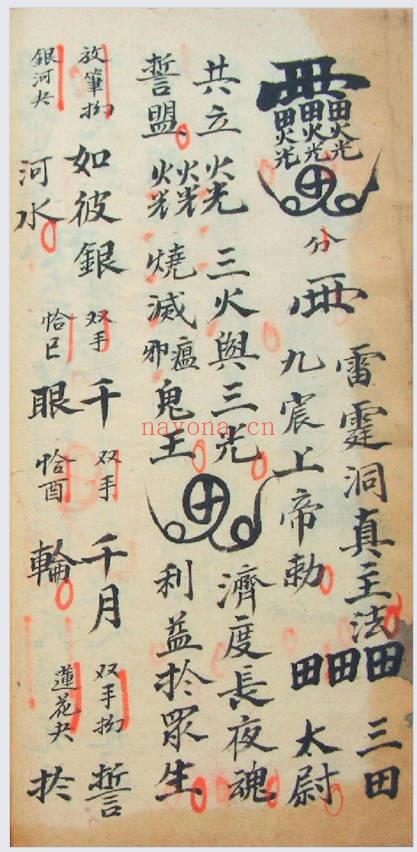 田田田
火光火光火光
分
雷霆洞真主法田田田三田
九宸上帝勅太尉
共立火光三火與三光濟度長夜魂
誓盟火光火光燒滅瘟邪鬼王利益於眾生
放筆掐如彼銀双手千双手千月双手掐誓
銀河夬河水恰巳眼恰酉輪蓮花夬於
nayona.cn